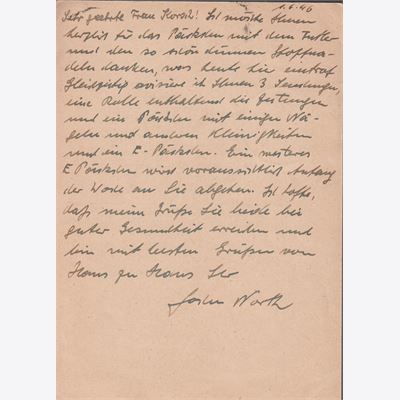 1.6.46
Sehr geehrte Frau Korsch! Ich möchte Ihnen
herzlich für das Päckchen mit dem Futter
und den so schön dünnen Stoffna-
deln danken, was heute hier eintraf.
Gleichzeitig avisiere ich Ihnen 3 Sendungen,
eine Rolle enthaltend die Zeitungen
und ein Päckchen mit einigen Nä-
geln und anderen Kleinigkeiten
und ein E-Päckchen. Ein weiteres
E Päckchen wird voraussichtlich Anfang
der Woche an Sie abgehen. Ich hoffe,
daß meine Grüße Sie beide bei
guter Gesundheit erreichen und
bin mit besten Grüßen von
Haus zu Haus Ihr
Worth